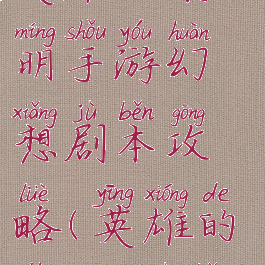 míng shǒu yóu huàn
明手游幻
xiǎng jù běn gòng
想剧本攻
lüè yīng xióng de
略(英雄的